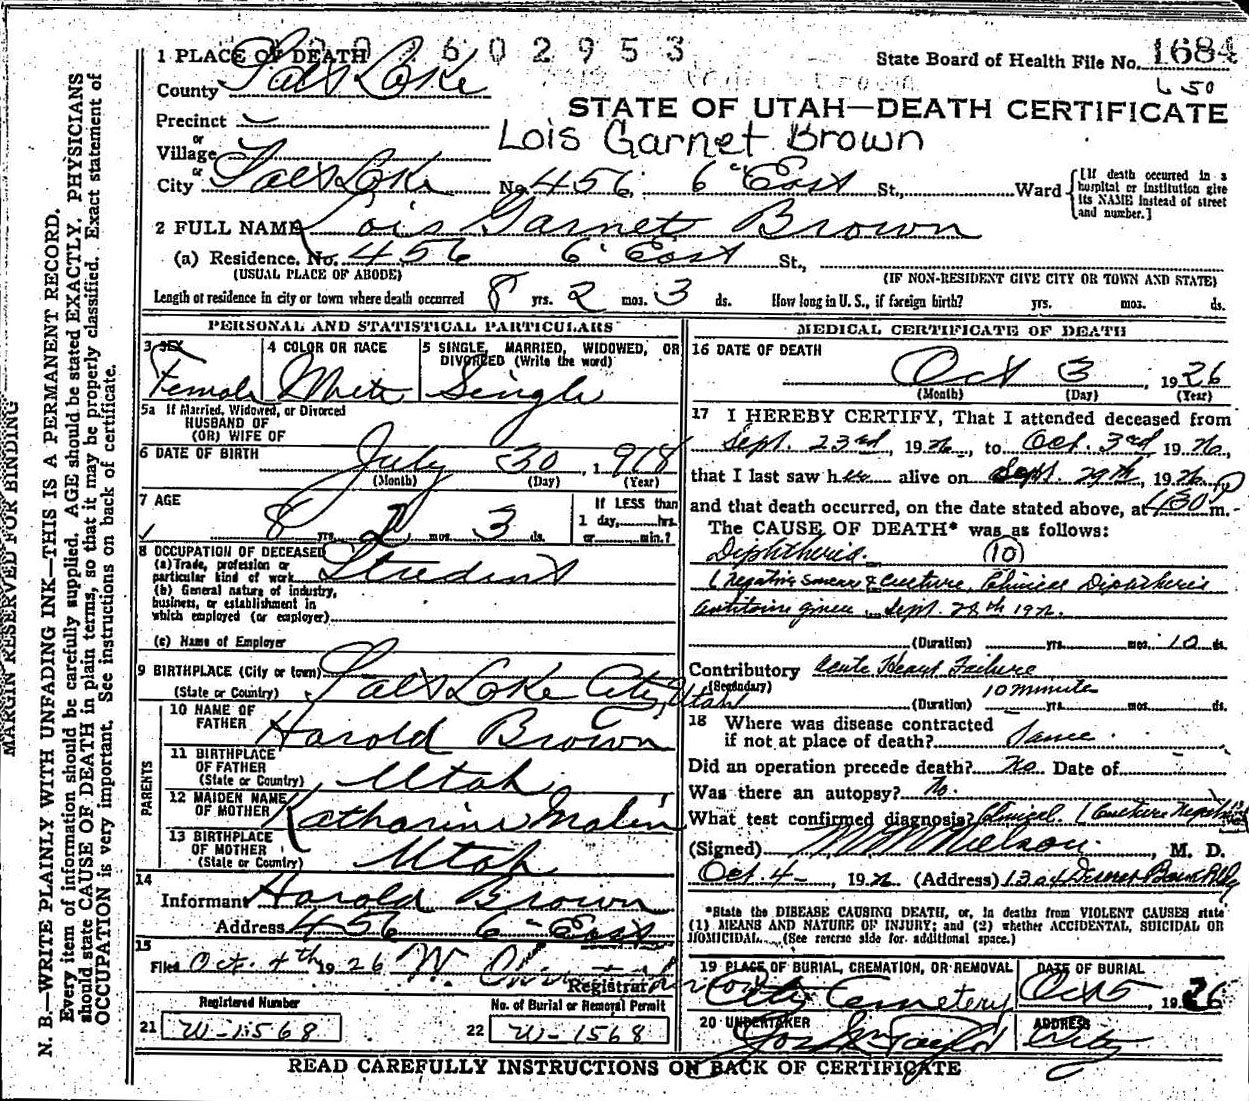 602953
State Board of Health File No. 1684
1 PLACE OF DEATH
County Salt Lake
650
STATE OF UTAH—DEATH CERTIFICATE
Precinct
or
Village
Lois Garnet Brown
or
City Salt Lake No. 456, 6" East St., Ward
[If death occurred in a hospital or institution give its NAME instead of street and number.]
2 FULL NAME Lois Garnet Brown
(a) Residence. No. 456 6" East St.,
(USUAL PLACE OF ABODE) (IF NON-RESIDENT GIVE CITY OR TOWN AND STATE)
Length of residence in city or town where death occurred 8 yrs. 2 mos. 3 ds. How long in U. S., if foreign birth? yrs. mos. ds.
PERSONAL AND STATISTICAL PARTICULARS
3 SEX
Female
4 COLOR OR RACE
White
5 SINGLE, MARRIED, WIDOWED, OR
DIVORCED (Write the word)
Single
5a If Married, Widowed, or Divorced
HUSBAND OF
(OR) WIFE OF
6 DATE OF BIRTH July 30, 1918
(Month) (Day) (Year)
7 AGE
8 yrs. 2 mos. 3 ds.
If LESS than
1 day, hrs.
or min.?
8 OCCUPATION OF DECEASED
(a) Trade, profession or
particular kind of work Student
(b) General nature of industry,
business, or establishment in
which employed (or employer)
(c) Name of Employer
9 BIRTHPLACE (City or town) Salt Lake City, Utah
(State or Country)
PARENTS
10 NAME OF
FATHER Harold Brown
11 BIRTHPLACE
OF FATHER
(State or Country) Utah
12 MAIDEN NAME
OF MOTHER Katharine Malin
13 BIRTHPLACE
OF MOTHER
(State or Country) Utah
14
Informant Harold Brown
Address 456 6" East
15
Filed Oct. 4th 1926 W.
Registrar
Registered Number
21 W-1568
No. of Burial or Removal Permit
22 W-1568
MEDICAL CERTIFICATE OF DEATH
16 DATE OF DEATH
Oct 3, 1926
(Month) (Day) (Year)
17 I HEREBY CERTIFY, That I attended deceased from
Sept. 23rd, 1926, to Oct. 3rd 1926,
that I last saw her alive on Sept. 29th, 1926,
and that death occurred, on the date stated above, at 1:30 P m.
The CAUSE OF DEATH* was as follows:
Diphtheria. (10)
(Negative smear & culture, Clinical Diphtheria
Antitoxin given Sept. 28th 1926.
(Duration) yrs. mos. 10 ds.
Contributory Acute Heart Failure
(Secondary) 10 minute
(Duration) yrs. mos. ds.
18 Where was disease contracted
if not at place of death? Same.
Did an operation precede death? No Date of
Was there an autopsy? No.
What test confirmed diagnosis? Clinical. (Culture Negative
(Signed) M M Nielson, M. D.
Oct. 4, 1926 (Address) 1304 Deseret Bank Bldg
*State the DISEASE CAUSING DEATH, or, in deaths from VIOLENT CAUSES state
(1) MEANS AND NATURE OF INJURY; and (2) whether ACCIDENTAL, SUICIDAL OR
HOMICIDAL. (See reverse side for additional space.)
19 PLACE OF BURIAL, CREMATION, OR REMOVAL
City Cemetery
DATE OF BURIAL
Oct 5, 1926
20 UNDERTAKER
Jos. Taylor
ADDRESS
City
READ CAREFULLY INSTRUCTIONS ON BACK OF CERTIFICATE
MARGIN RESERVED FOR BINDING
N. B.—WRITE PLAINLY WITH UNFADING INK—THIS IS A PERMANENT RECORD.
Every item of information should be carefully supplied. AGE should be stated EXACTLY. PHYSICIANS
should state CAUSE OF DEATH in plain terms, so that it may be properly classified. Exact statement of
OCCUPATION is very important. See instructions on back of certificate.